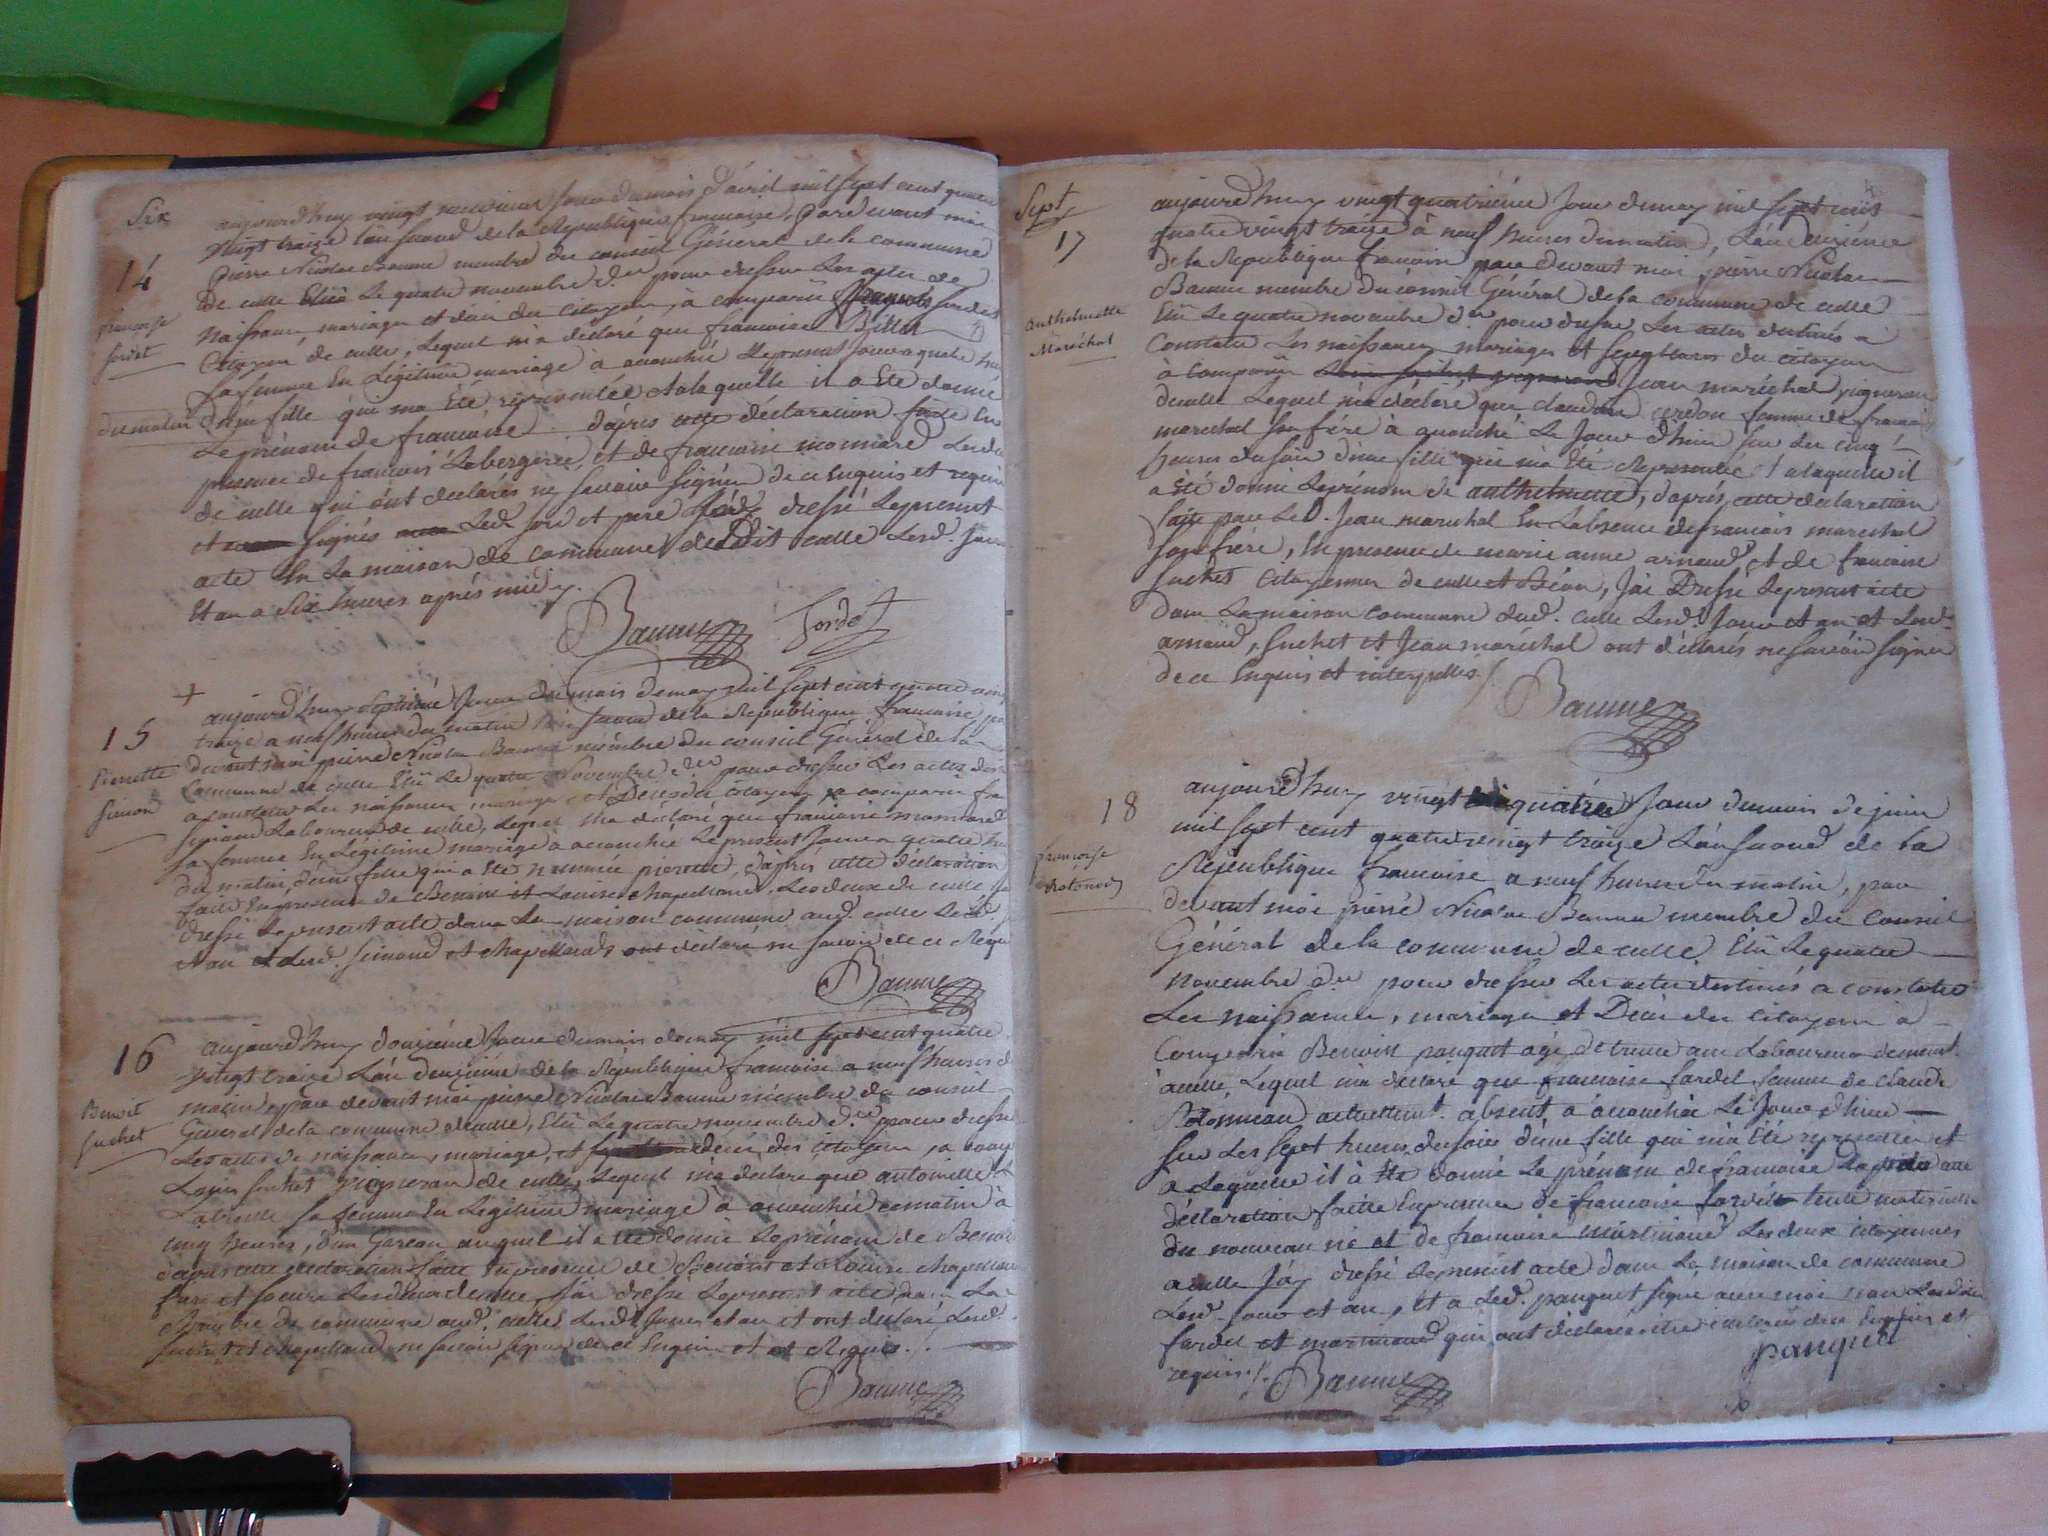 Six
aujourd'huy vingt jour du mois d'avril mil sept cent quatre
vingt traize l'an second de la Republique francaise, par devant moi
14
pierre Nicolas Baume membre du conseil Général de la commune
de culle Elüe Le quatre novembre d.er pour dresser Les actes de
Naissances, mariages et du citoyen, à comparüe françois fordet
francoise
fordet
Citoyen de culle, Lequel m'a déclaré que francoise Billet
Sa femme En Légitime mariage à accouchée Le présent jour a quatre
du matin d'une fille qui m'a Eté représentée et a laquelle il a Eté donné
Le prénom de francoise. d'après cette déclaration faite En
présence de francois Labergerie, et de francoise monnard
de culle qui ont déclarés ne savoir signer de ce Enquis et requis
et signés Led. et pere J'ai dressé Le présent
acte En La maison de commune dudit culle Lesd. jour
Et an a Six heures après midy.
Baume fordet
+
15
aujourd'huy Septième Jour du mois de may mil sept cent quatre
traize a neuf heures du matin l'an second de la Republique francaise
Pierrette
Simond
devant moi pierre Nicolas Baume membre du conseil Général de la
commune de culle Elüe Le quatre Novembre d.er pour dresser Les actes
a constater Les naissances, mariages et Deces du citoyen, a comparüe
Simond Laboureur de culle, Lequel m'a déclaré que francoise monnard
Sa femme En Légitime mariage à accouchée Le présent Jour a quatre
du matin, d'une fille qui a Eté nommée pierrette, d'après cette déclaration
faite En presence de Benoist et Louise chapelland, Les deux de culle
dressé Le present acte dans La maison commune aud. culle Lesd.
et an et Lesd. simond et chapelland ont déclaré ne savoir de ce
Baume
16
aujourd'huy douzième Jour du mois de may mil sept cent quatre
vingt traize L'an deuxième de la République francaise a neuf heures
Benoit
Suchet
matin, par devant moi pierre Nicolas Baume membre du conseil
Général de la commune de culle, Elüe Le quatre novembre d.er pour dresser
Les actes de naissances, mariage, et deces des citoyens, a
Suchet vigneron de culle, Lequel m'a déclaré que antoinette
sa femme En Légitime mariage à accouchée ce matin à
cinq heures, d'un Garcon auquel il a été donné Le prénom de Benoit
d'apres cette déclaration faite En presence de Benoist et Louise chapelland
frere et soeur J'ai dressé Le present acte dans La
Chambre de commune aud. culle Lesd. Jour et an et ont déclaré Lesd.
suchet et chapelland ne savoir signer de ce Enquis et Requis.
Baume
Sept
17
aujourd'huy vingt quatrième Jour de may mil sept cent
quatre vingt traize à neuf heures du matin, L'an deuxième
de la Republique francaise par devant moi pierre Nicolas
Baume membre du conseil Général de la commune de culle
Anthelmette
Maréchal
Elüe Le quatre novembre d.er pour dresser Les actes destinés a
Constater Les naissances mariages et du citoyen
à comparüe Jean maréchal vigneron
de culle Lequel m'a déclaré que cerdon femme de francois
marechal son frére à acouché Le Jour d'hier sur Les cinq
heures du soir d'une fille qui m'a Eté Représentée et a laquelle il
a Eté donné Le prénom de anthelmette, d'après cette déclaration
faite par Led. Jean marechal En L'absence de francois marechal
son frére, En presence de marie anne arnaud et de francoise
Suchet Citoyennes de culle et Béon, J'ai Dressé Le present acte
dans La maison commune dud. culle Lesd. Jour et an et Lesd.
arnaud, suchet et Jean maréchal ont déclarés ne savoir signer
de ce Enquis et interpellés.
Baume
18
aujourd'huy vingt quatre Jour du mois de juin
mil sept cent quatre vingt traize L'an second de la
francoise
République francaise a neuf heures du matin, par
devant moi pierre Nicolas Baume membre du Conseil
Général de la commune de culle Elüe Le quatre
Novembre d.er pour dresser Les actes destinés a constater
Les naissances, mariages et Deces des citoyens a
Comparüe Benoist panquet agé de trente ans Laboureur
a culle Lequel m'a déclaré que francoise fardel femme de Claude
actuellement absent, a accouchée Le Jour d'hier
sur Les sept heures du soir d'une fille qui m'a Eté représentée et
a Laquelle il a Eté donné Le prénom de francoise cette
déclaration faitte En presence de francoise fardel tente maternelle
du nouveau né et de francoise martinand Les deux citoyennes
a culle J'ay dressé Le present acte dans La maison de commune
Lesd. jour et an, Et a Led. panquet signé avec moi non Lesdites
fardel et martinand qui ont déclarés de ce Enquis et
requis.
panquet
Baume